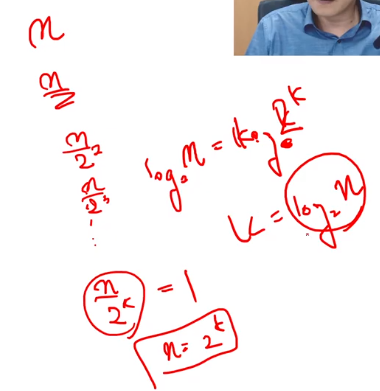 n
n/2
n/2²
n/2³
⋮
n/2ᵏ = 1
n = 2ᵏ
log₂ n = log₂ 2ᵏ
k = log₂ n